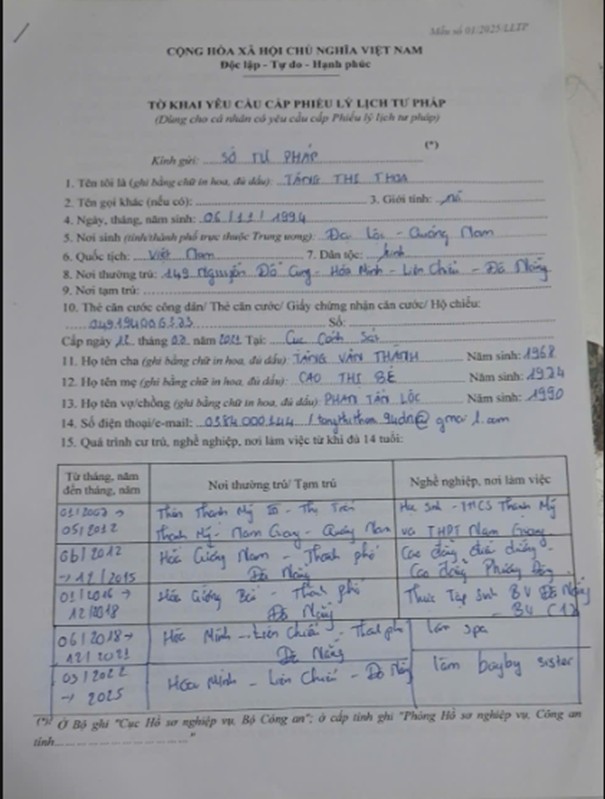 Mẫu số 01/2025/LLTP
CỘNG HÒA XÃ HỘI CHỦ NGHĨA VIỆT NAM
Độc lập - Tự do - Hạnh phúc
TỜ KHAI YÊU CẦU CẤP PHIẾU LÝ LỊCH TƯ PHÁP
(Dùng cho cá nhân có yêu cầu cấp Phiếu lý lịch tư pháp)
Kính gửi: SỞ TƯ PHÁP (*)
1. Tên tôi là (ghi bằng chữ in hoa, đủ dấu): TĂNG THỊ THOA
2. Tên gọi khác (nếu có): 3. Giới tính: nữ
4. Ngày, tháng, năm sinh: 06/11/1994
5. Nơi sinh (tỉnh/thành phố trực thuộc Trung ương): Đại Lộc - Quảng Nam
6. Quốc tịch: Việt Nam 7. Dân tộc: kinh
8. Nơi thường trú: 149 Nguyễn Đỗ Cung - Hòa Minh - Liên Chiểu - Đà Nẵng
9. Nơi tạm trú:
10. Thẻ căn cước công dân/ Thẻ căn cước/ Giấy chứng nhận căn cước/ Hộ chiếu:
Số:
Cấp ngày 12 tháng 02 năm 2021 Tại: Cục Cảnh Sát
11. Họ tên cha (ghi bằng chữ in hoa, đủ dấu): TĂNG VĂN THÀNH Năm sinh: 1968
12. Họ tên mẹ (ghi bằng chữ in hoa, đủ dấu): CAO THỊ BÉ Năm sinh: 1974
13. Họ tên vợ/chồng (ghi bằng chữ in hoa, đủ dấu) PHAN TẤN LỘC Năm sinh: 1990
14. Số điện thoại/e-mail: 0384000144 / @gmail.com
15. Quá trình cư trú, nghề nghiệp, nơi làm việc từ khi đủ 14 tuổi:
Từ tháng, năm
đến tháng, năm
Nơi thường trú/ Tạm trú
Nghề nghiệp, nơi làm việc
→
05/2012
Thôn Thạnh Mỹ - Thị Trấn
Thạnh Mỹ - Nam Giang - Quảng Nam
Học Sinh - THCS Thạnh Mỹ
và THPT Nam Giang
06/2012
→ 12/2015
Nam - Thành phố
Đà Nẵng
Cao đẳng
Cao đẳng Phương Đông
01/2016 →
12/2018
Thành phố
Đà Nẵng
Thực Tập Sinh BV Đà Nẵng
06/2018 →
12/2021
Hòa Minh - Liên Chiểu - Thành phố
Đà Nẵng
làm spa
03/2022
→ 2025
Hòa Minh - Liên Chiểu - Đà Nẵng
làm bayby sister
(*) Ở Bộ ghi "Cục Hồ sơ nghiệp vụ, Bộ Công an"; ở cấp tỉnh ghi "Phòng Hồ sơ nghiệp vụ, Công an
tỉnh.............................."